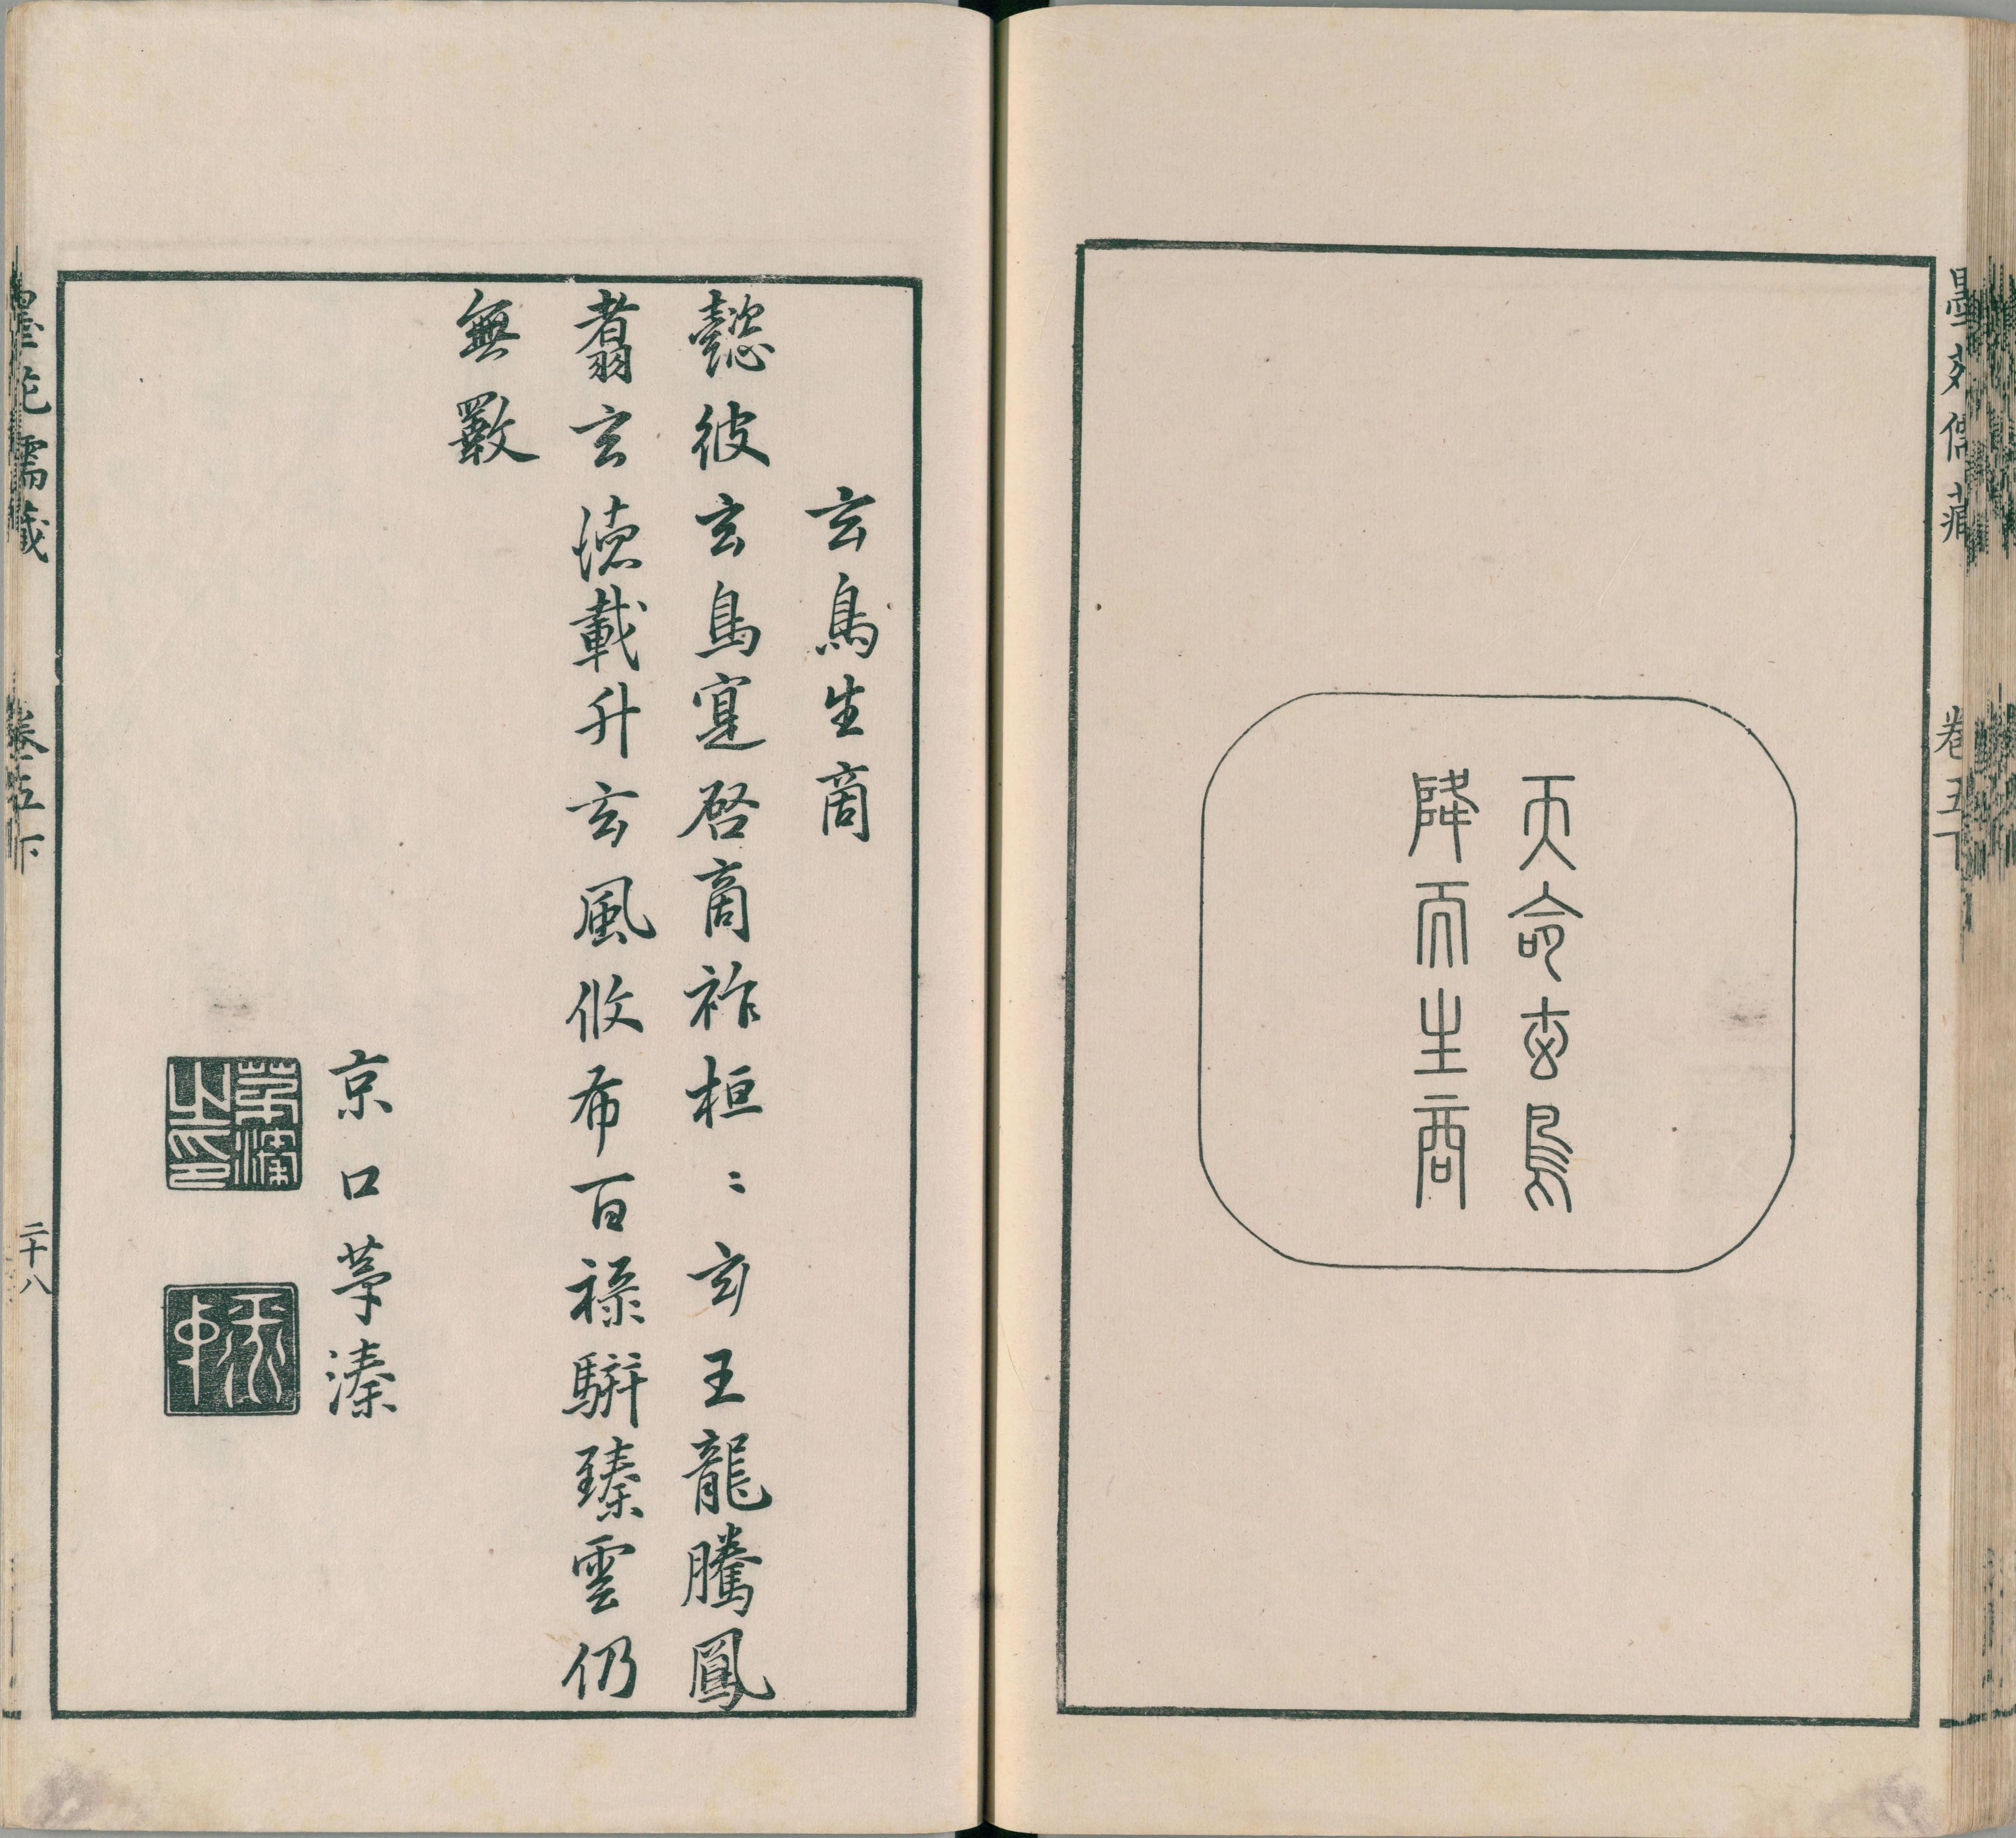 墨苑儒藏
卷五下
天命玄鳥
降而生商
玄鳥生商
懿彼玄鳥寔啓商祚桓〻玄王龍騰鳳
翥玄德載升玄風攸布百祿駢臻雲仍
無斁
京口茅溱
茅溱之印
墨苑儒藏
卷五下
二十八